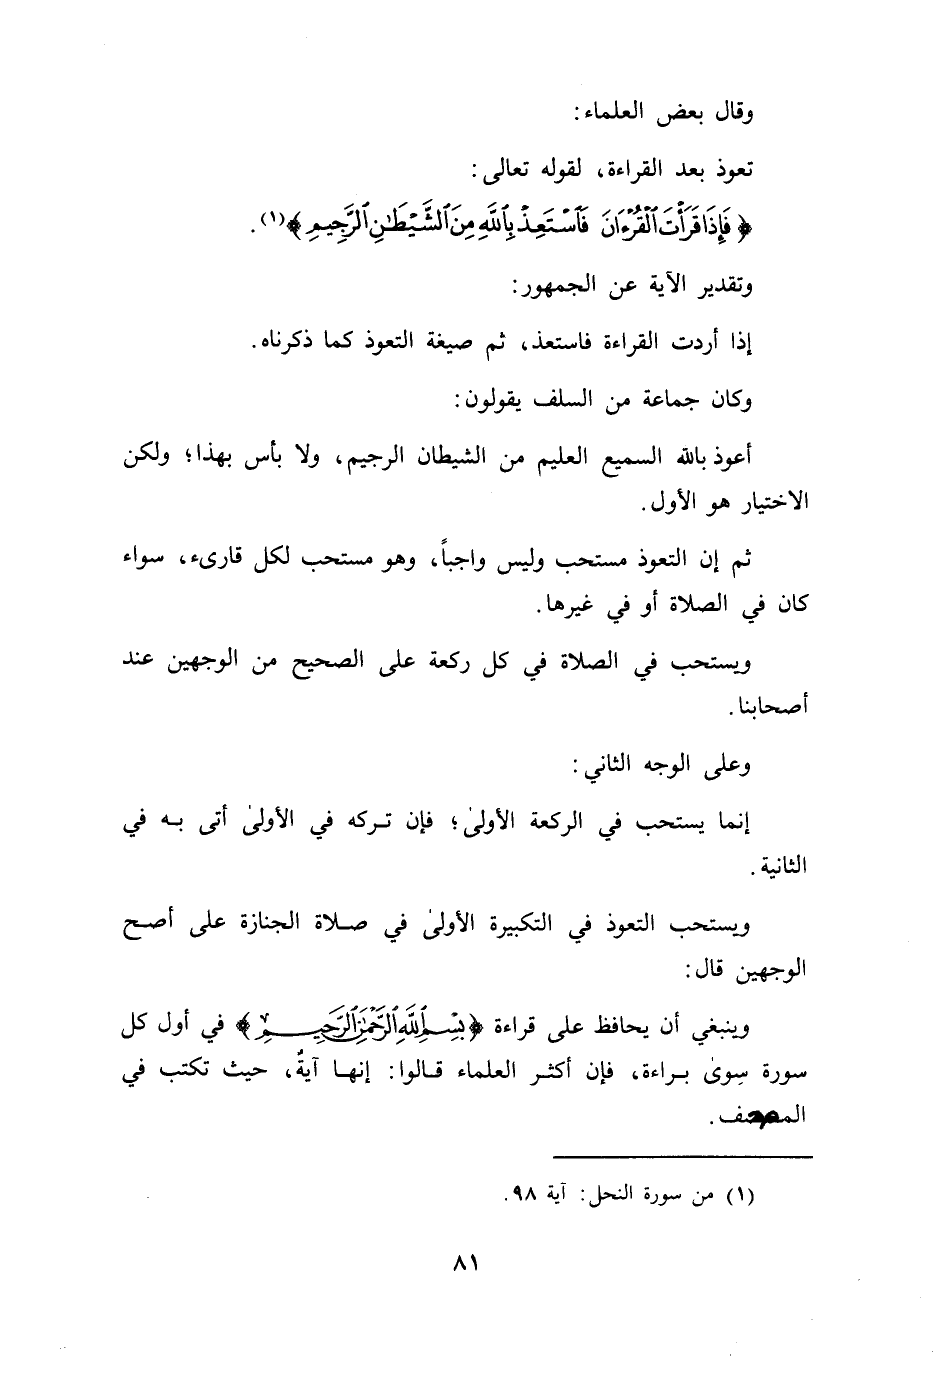 وقال بعض العلماء:
تعوذ بعد القراءة، لقوله تعالى:
﴿ فَإِذَا قَرَأْتَ ٱلْقُرْءَانَ فَٱسْتَعِذْ بِٱللَّهِ مِنَ ٱلشَّيْطَٰنِ ٱلرَّجِيمِ ﴾(١).
وتقدير الآية عن الجمهور:
إذا أردت القراءة فاستعذ، ثم صيغة التعوذ كما ذكرناه.
وكان جماعة من السلف يقولون:
أعوذ بالله السميع العليم من الشيطان الرجيم، ولا بأس بهذا؛ ولكن
الاختيار هو الأول.
ثم إن التعوذ مستحب وليس واجباً، وهو مستحب لكل قارىء، سواء
كان في الصلاة أو في غيرها.
ويستحب في الصلاة في كل ركعة على الصحيح من الوجهين عند
أصحابنا.
وعلى الوجه الثاني:
إنما يستحب في الركعة الأولىٰ؛ فإن تركه في الأولىٰ أتى به في
الثانية.
ويستحب التعوذ في التكبيرة الأولىٰ في صلاة الجنازة على أصح
الوجهين قال:
وينبغي أن يحافظ على قراءة ﴿ بِسْمِ ٱللَّهِ ٱلرَّحْمَٰنِ ٱلرَّحِيمِ ﴾ في أول كل
سورة سِوىٰ براءة، فإن أكثر العلماء قالوا: إنها آيةٌ، حيث تكتب في
المصحف.
(١) من سورة النحل: آية ٩٨.
٨١